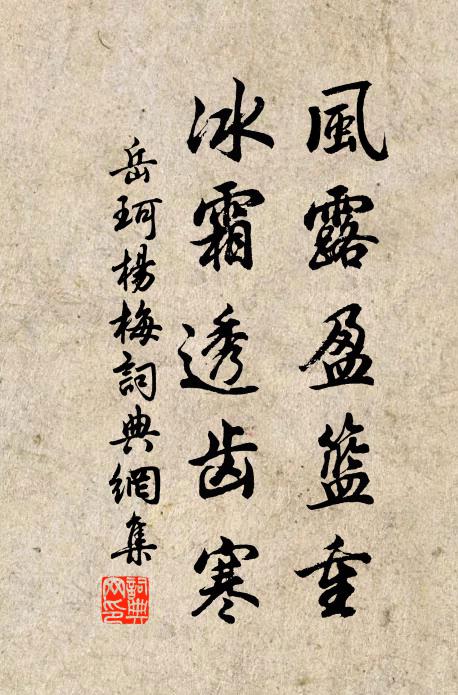 風露盈籃重
冰霜透齒寒
岳珂楊梅詞典網集
詞典网印